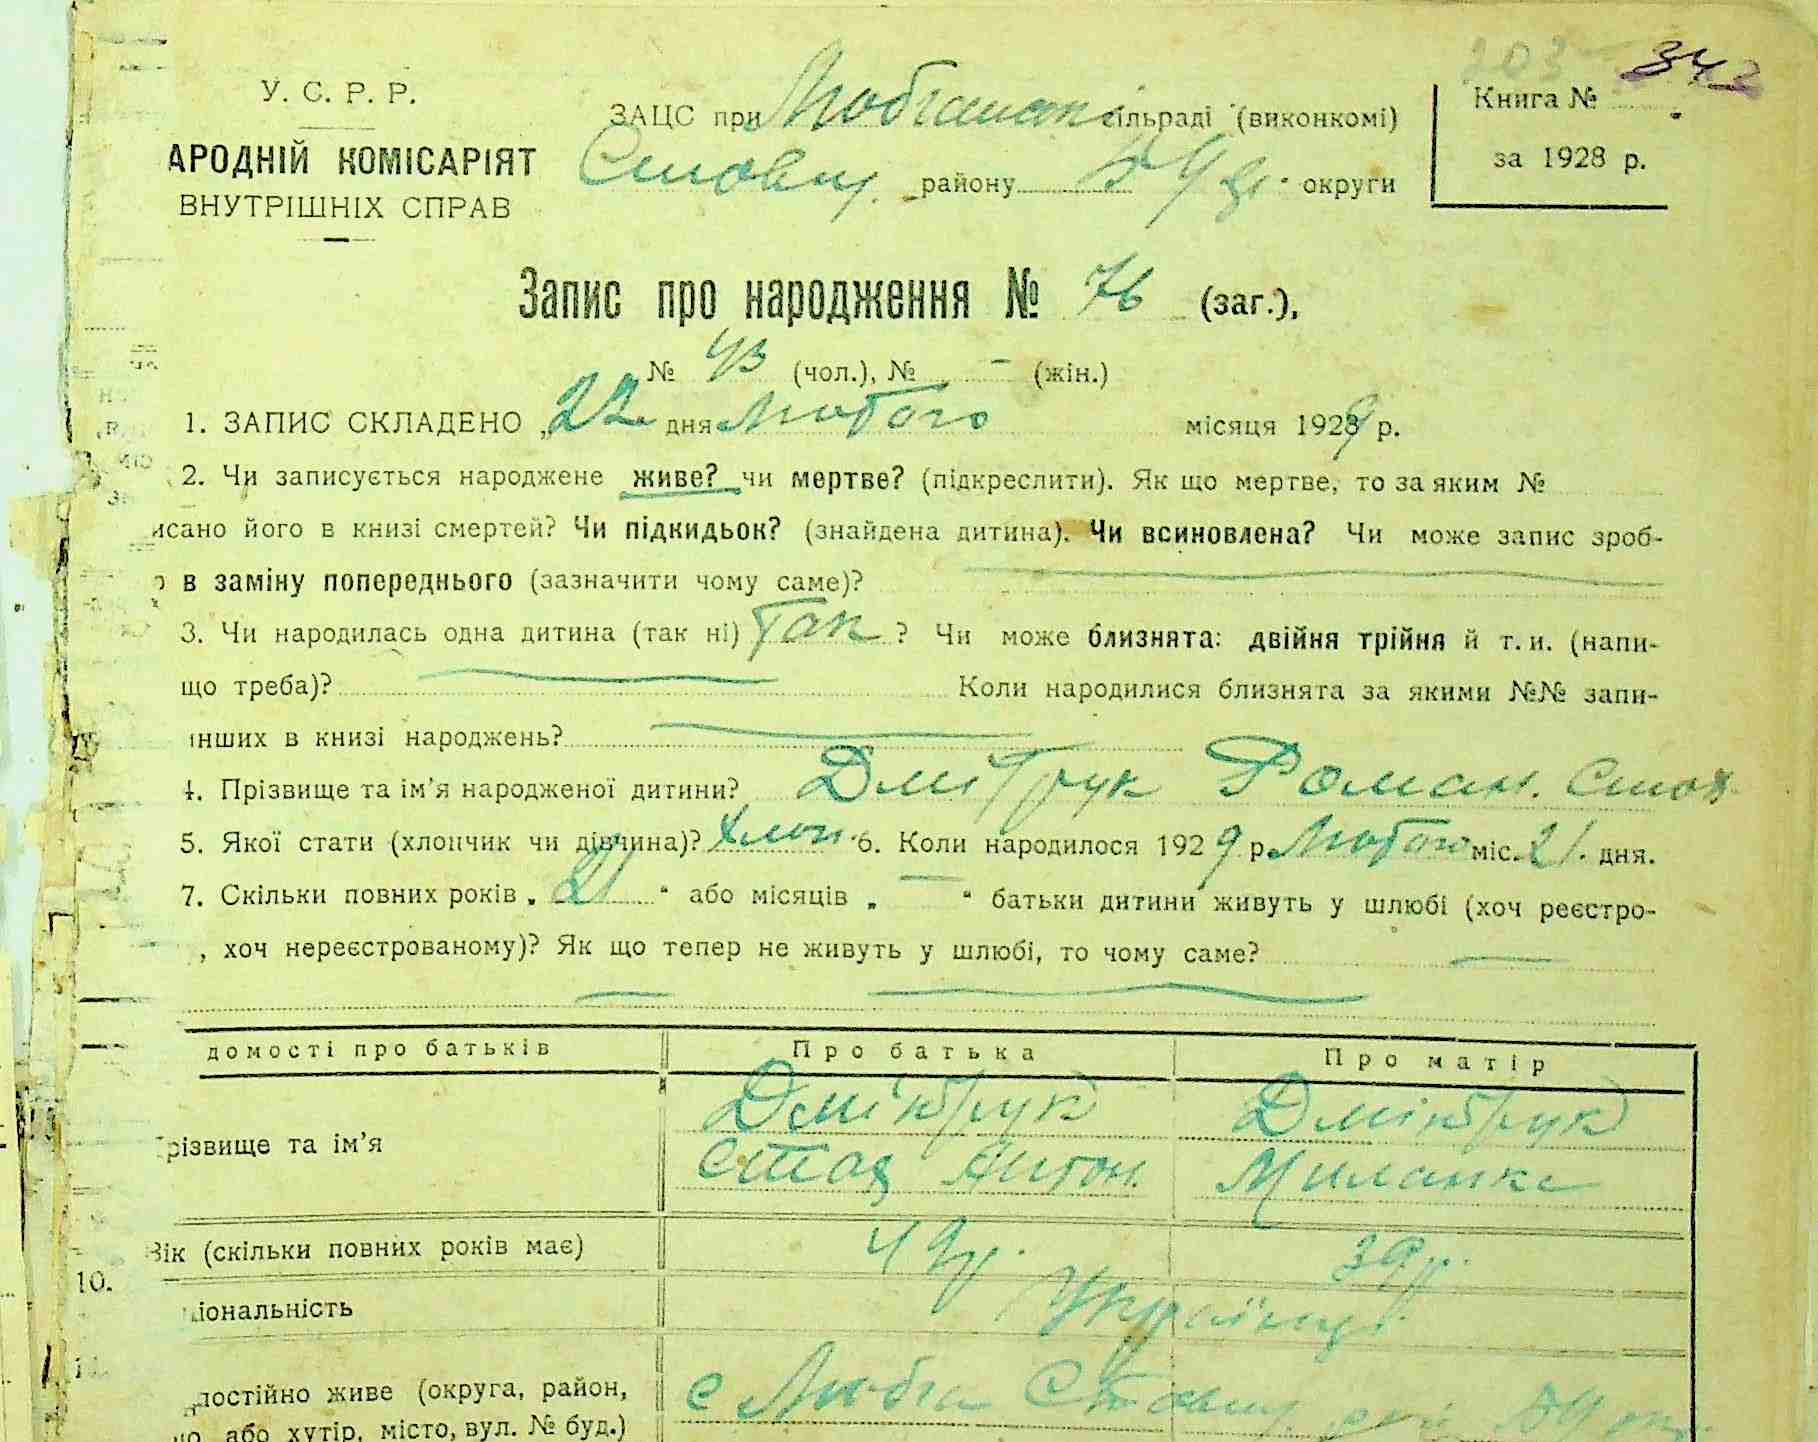 203 342
У. С. Р. Р.
АРОДНІЙ КОМІСАРІЯТ
ВНУТРІШНІХ СПРАВ
ЗАЦС при сільраді (виконкомі)
району округи
Книга №
за 1928 р.
Запис про народження № 76 (заг.),
№ 43 (чол.), № – (жін.)
1. ЗАПИС СКЛАДЕНО „22 дня Лютого місяця 1929 р.
2. Чи записується народжене живе? чи мертве? (підкреслити). Як що мертве, то за яким №
исано його в книзі смертей? Чи підкидьок? (знайдена дитина). Чи всиновлена? Чи може запис зроб-
о в заміну попереднього (зазначити чому саме)?
3. Чи народилась одна дитина (так ні) Так ? Чи може близнята: двійня трійня й т. и. (напи-
що треба)? Коли народилися близнята за якими №№ запи-
інших в книзі народжень?
4. Прізвище та ім'я народженої дитини? Дмітрук Роман.
5. Якої стати (хлопчик чи дівчина)? хлоп. 6. Коли народилося 1929 р. Лютого міс. 21. дня.
7. Скільки повних років „ 21 " або місяців „ — " батьки дитини живуть у шлюбі (хоч реєстро-
, хоч нереєстрованому)? Як що тепер не живуть у шлюбі, то чому саме?
домості про батьків Про батька Про матір
різвище та ім'я Дмітрук Дмітрук
Антон. Миланка
Вік (скільки повних років має) 42 р. 39 р.
10.
іональність Українці
11.
постійно живе (округа, район, с
або хутір, місто, вул. № буд.)